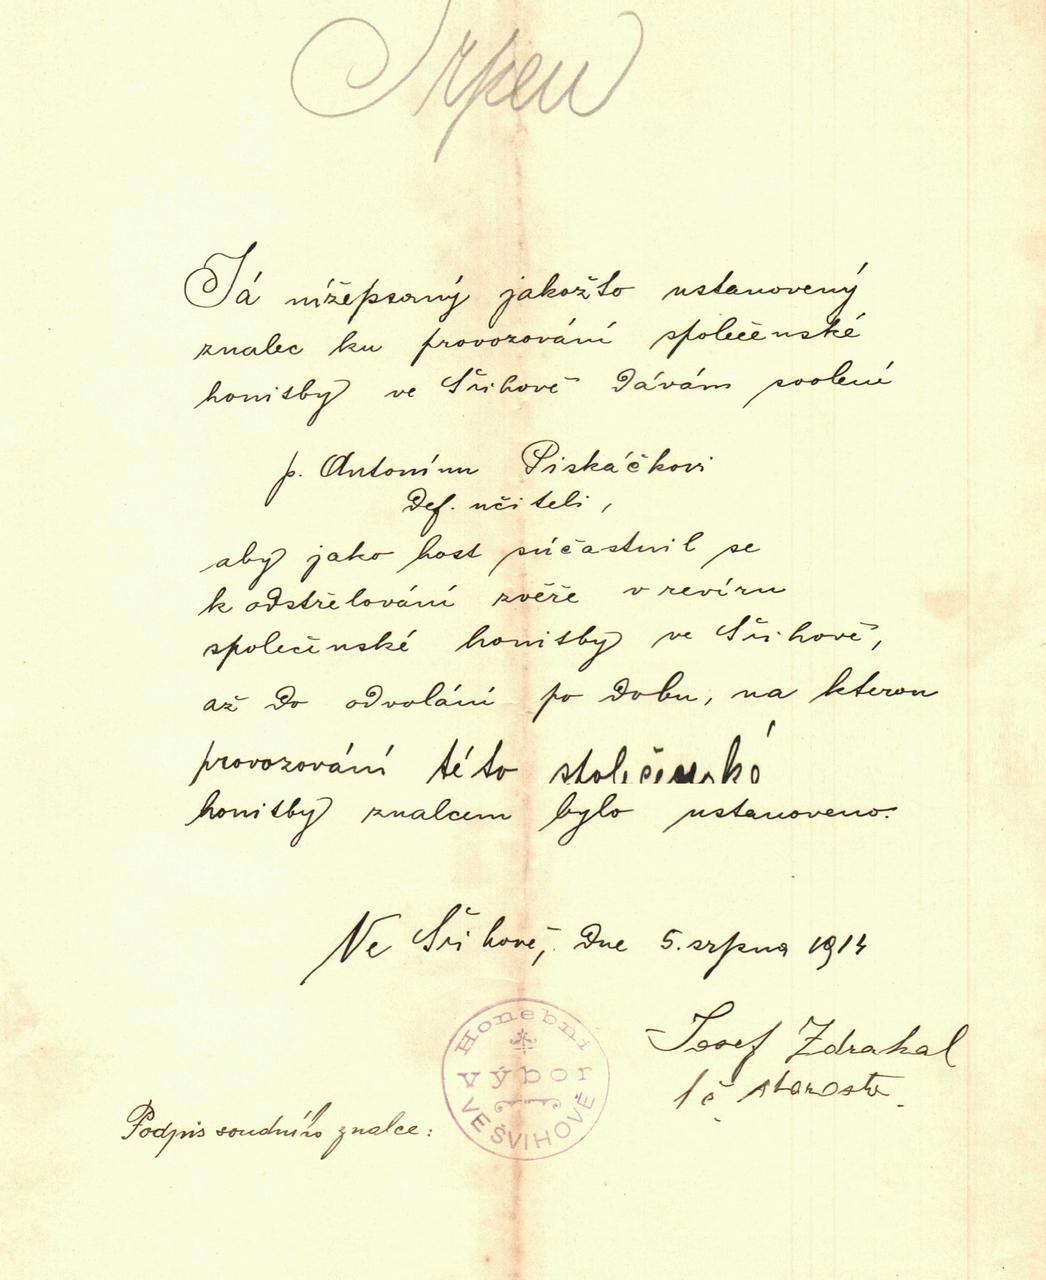 Srpen
Já nížepsaný jakožto ustanovený
znalec ku provozování společenské
honitby ve Švihově dávám svolení
p. Antonínu Piskáčkovi
def. učiteli,
aby jako host súčastnil se
k odstřelování zvěře v revíru
společenské honitby ve Švihově,
až do odvolání po dobu, na kterou
provozování této
honitby znalcem bylo ustanoveno.
Ve Švihově, dne 5. srpna 1914
Honební
výbor
VE ŠVIHOVĚ
Josef Zdrahal
starosta
Podpis soudního znalce: